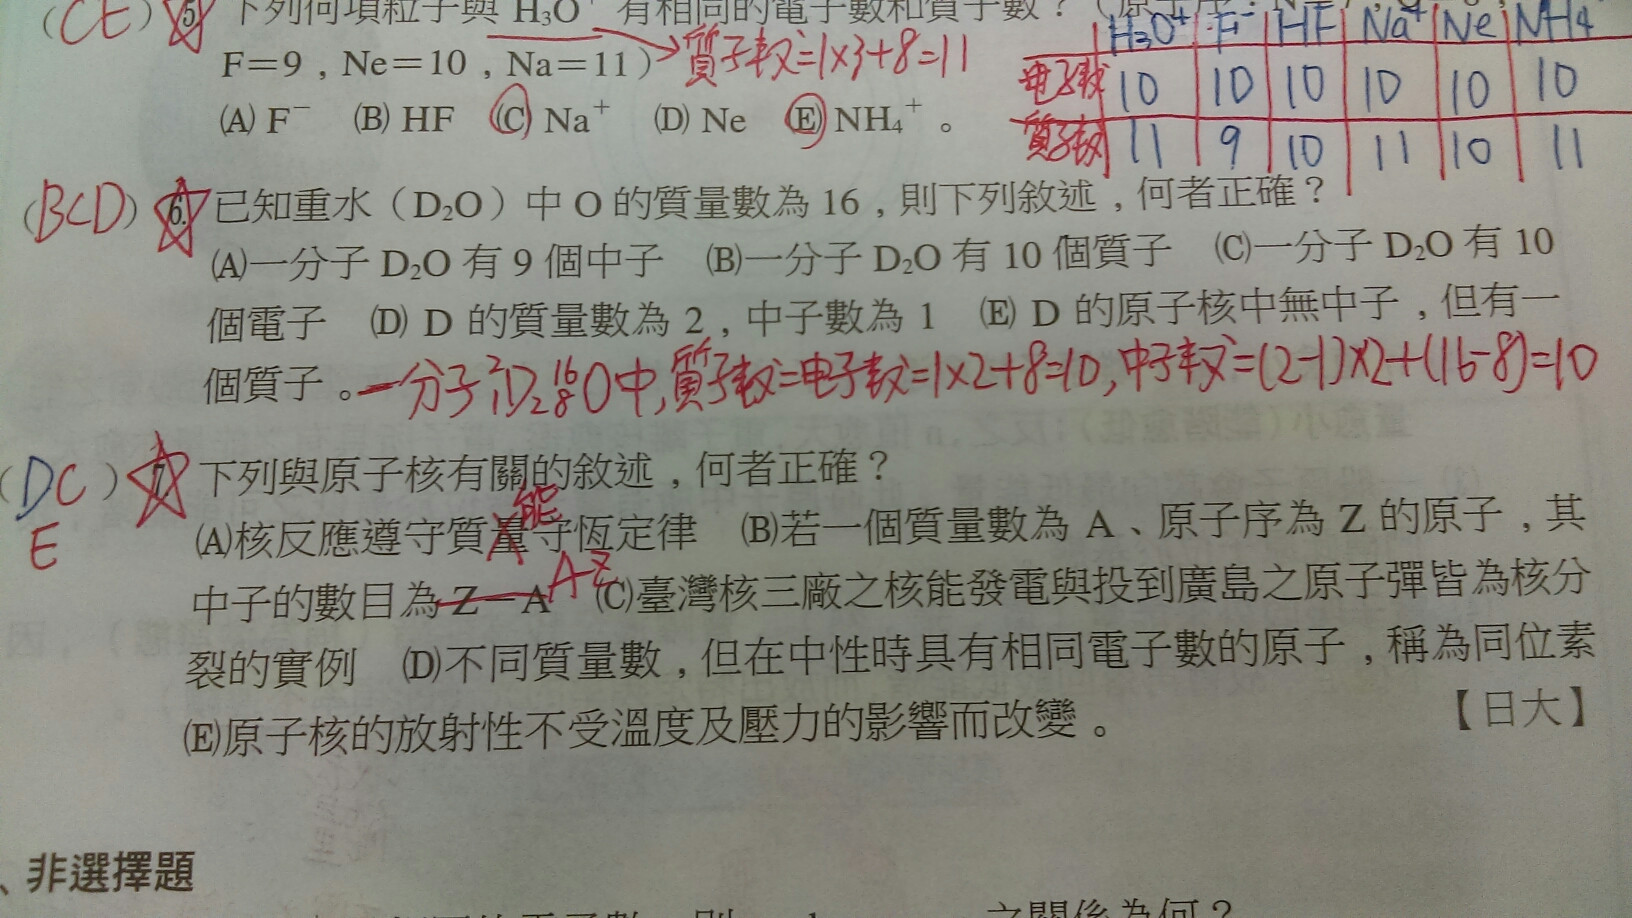 (CE) 5. 下列何項粒子與 H₃O⁺ 有相同的電子數和質子數？（原子序：N＝
F＝9，Ne＝10，Na＝11) 質子数=1×3+8=11
(A) F⁻ (B) HF (C) Na⁺ (D) Ne (E) NH₄⁺。
H₃O⁺ F⁻ HF Na⁺ Ne NH4
电子数 10 10 10 10 10 10
質子数 11 9 10 11 10 11
(BCD) 6. 已知重水（D₂O）中 O 的質量數為 16，則下列敘述，何者正確？
(A)一分子 D₂O 有 9 個中子 (B)一分子 D₂O 有 10 個質子 (C)一分子 D₂O 有 10
個電子 (D) D 的質量數為 2，中子數為 1 (E) D 的原子核中無中子，但有一
個質子。一分子²₁D₂¹⁶₈O中,質子数=电子数=1×2+8=10,中子数=(2-1)×2+(16-8)=10
(DC E) 7. 下列與原子核有關的敘述，何者正確？
能
(A)核反應遵守質量守恆定律 (B)若一個質量數為 A、原子序為 Z 的原子，其
中子的數目為 Z－A A-Z (C)臺灣核三廠之核能發電與投到廣島之原子彈皆為核分
裂的實例 (D)不同質量數，但在中性時具有相同電子數的原子，稱為同位素
(E)原子核的放射性不受溫度及壓力的影響而改變。 【日大】
、非選擇題
之關係為何？